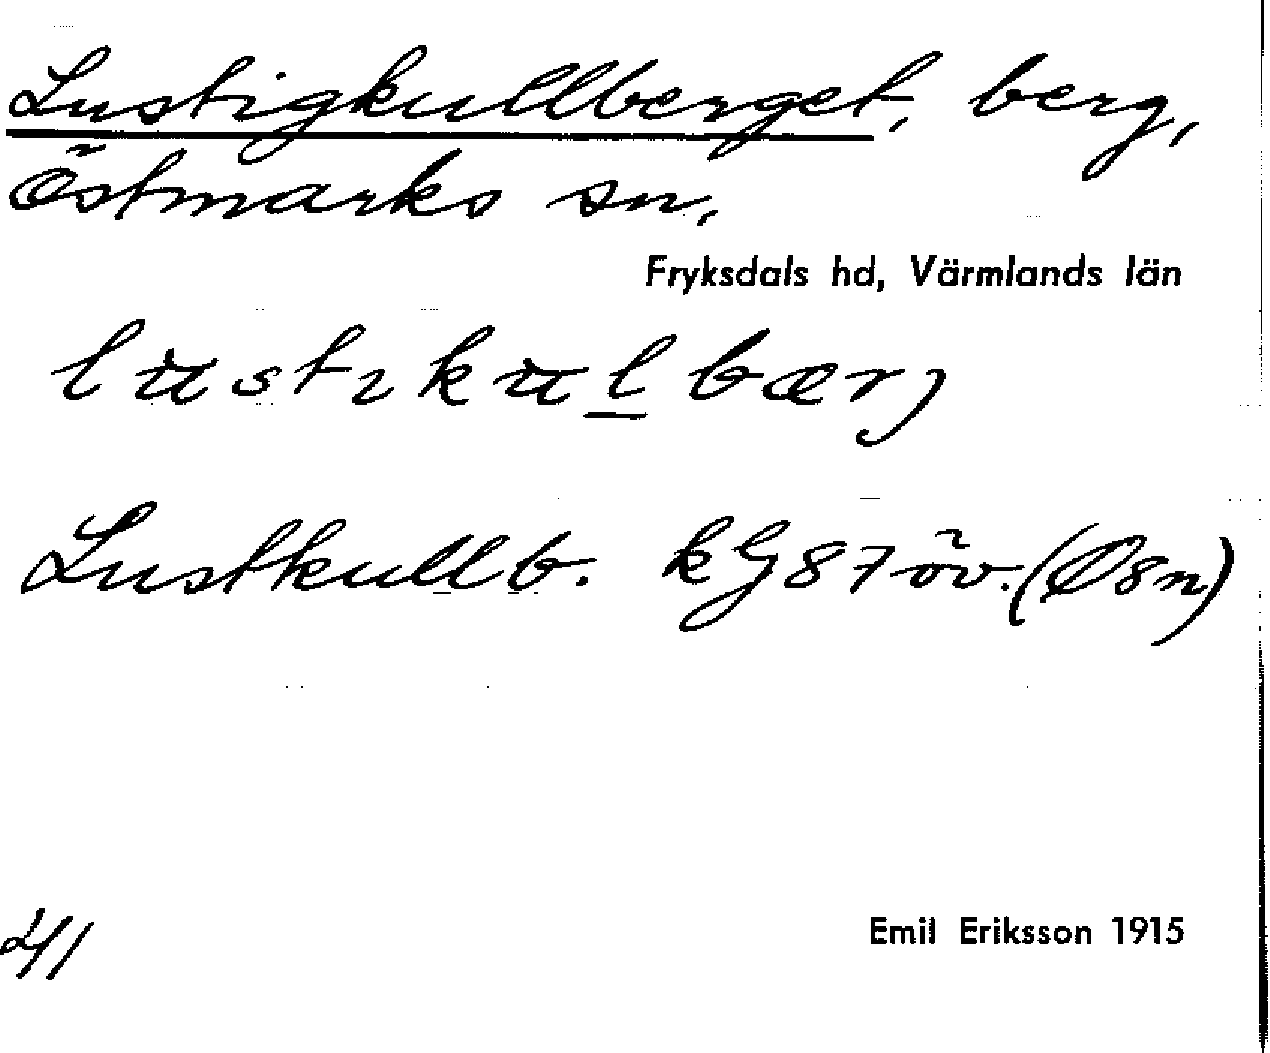 Lustigkullberget, berg,
Östmarks sn,
Fryksdals hd, Värmlands län
lustıkulbærj
Lustkullb. kG87öv. (Øsn)
Emil Eriksson 1915